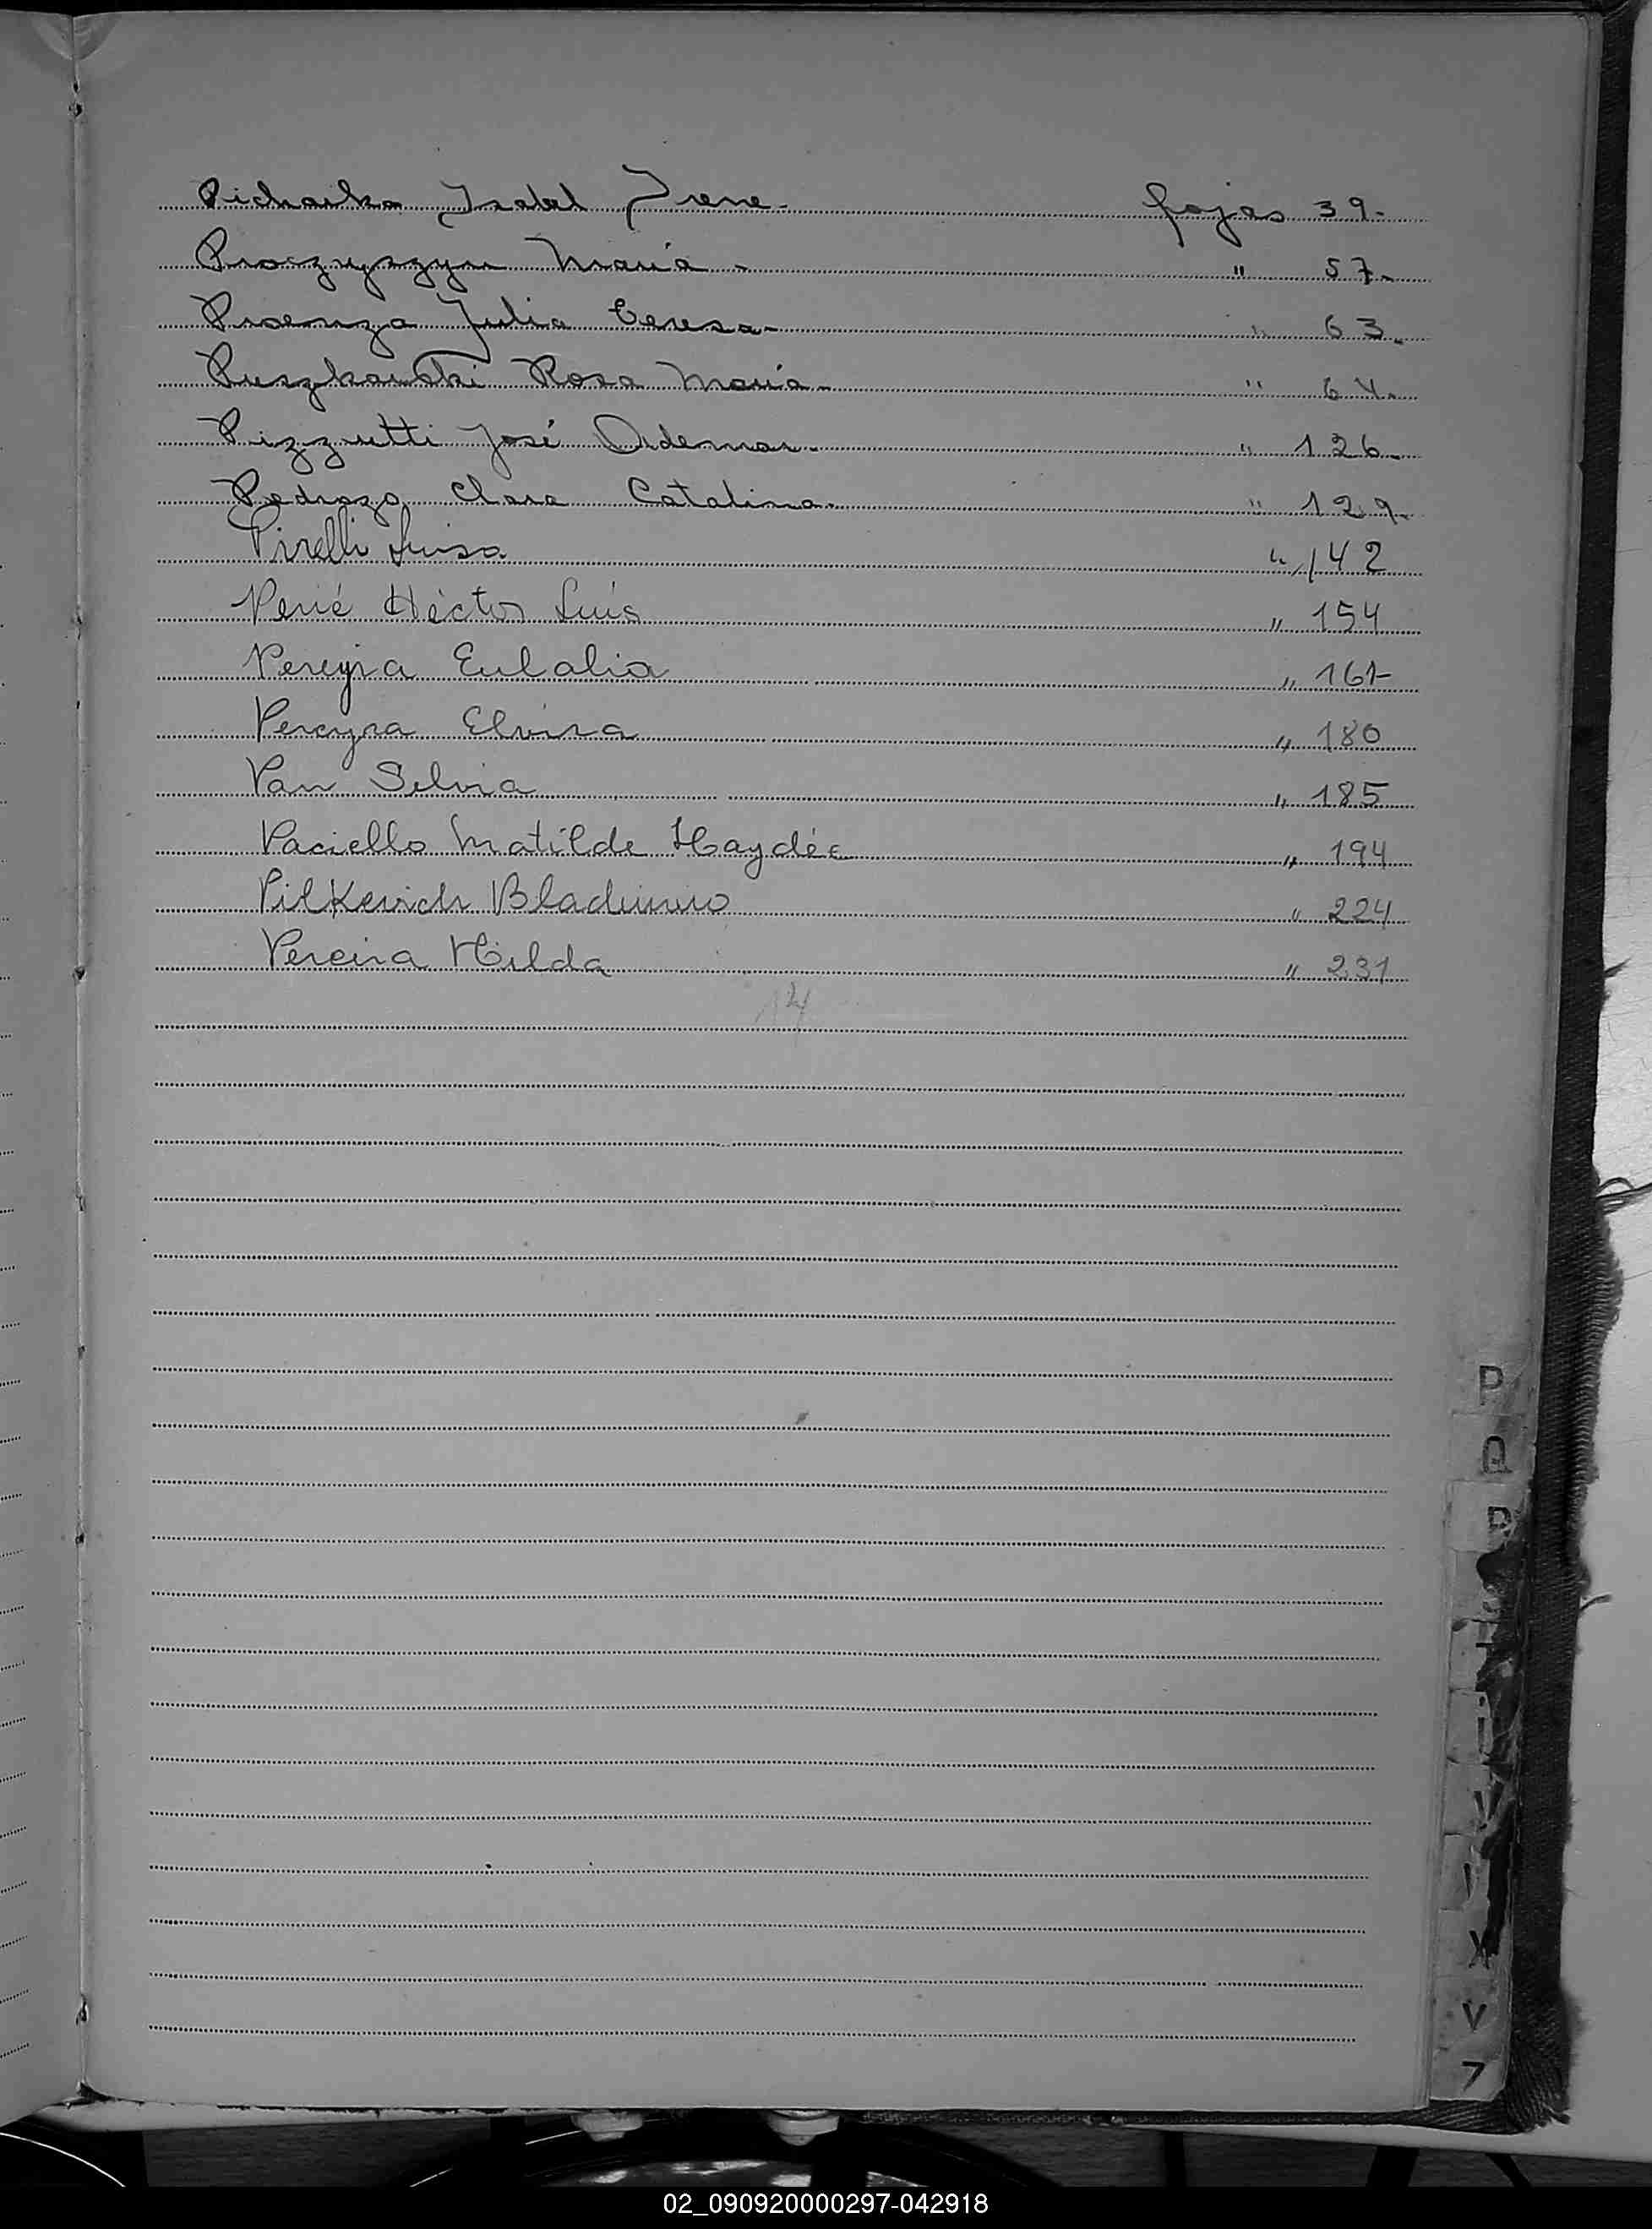 Pichaika Isabel Irene.- fojas 39.-
Proczyszyn María.- " 57.-
Proenza Julia Teresa.- " 63.-
Puszkowski Rosa María.- " 64.-
Pizzutti José Ademar.- " 126.-
Pedrozo Clara Catalina.- " 129.-
Pirelli Luisa " 142
Perié Héctor Luis " 154
Pereyra Eulalia " 161-
Pereyra Elvira " 180
Pan Selvia " 185
Paciello Matilde Haydée " 194
Pilkevich Bladimiro " 224
Pereira Hilda " 231
14
P
Q
R
V
X
Y
Z
02_090920000297-042918